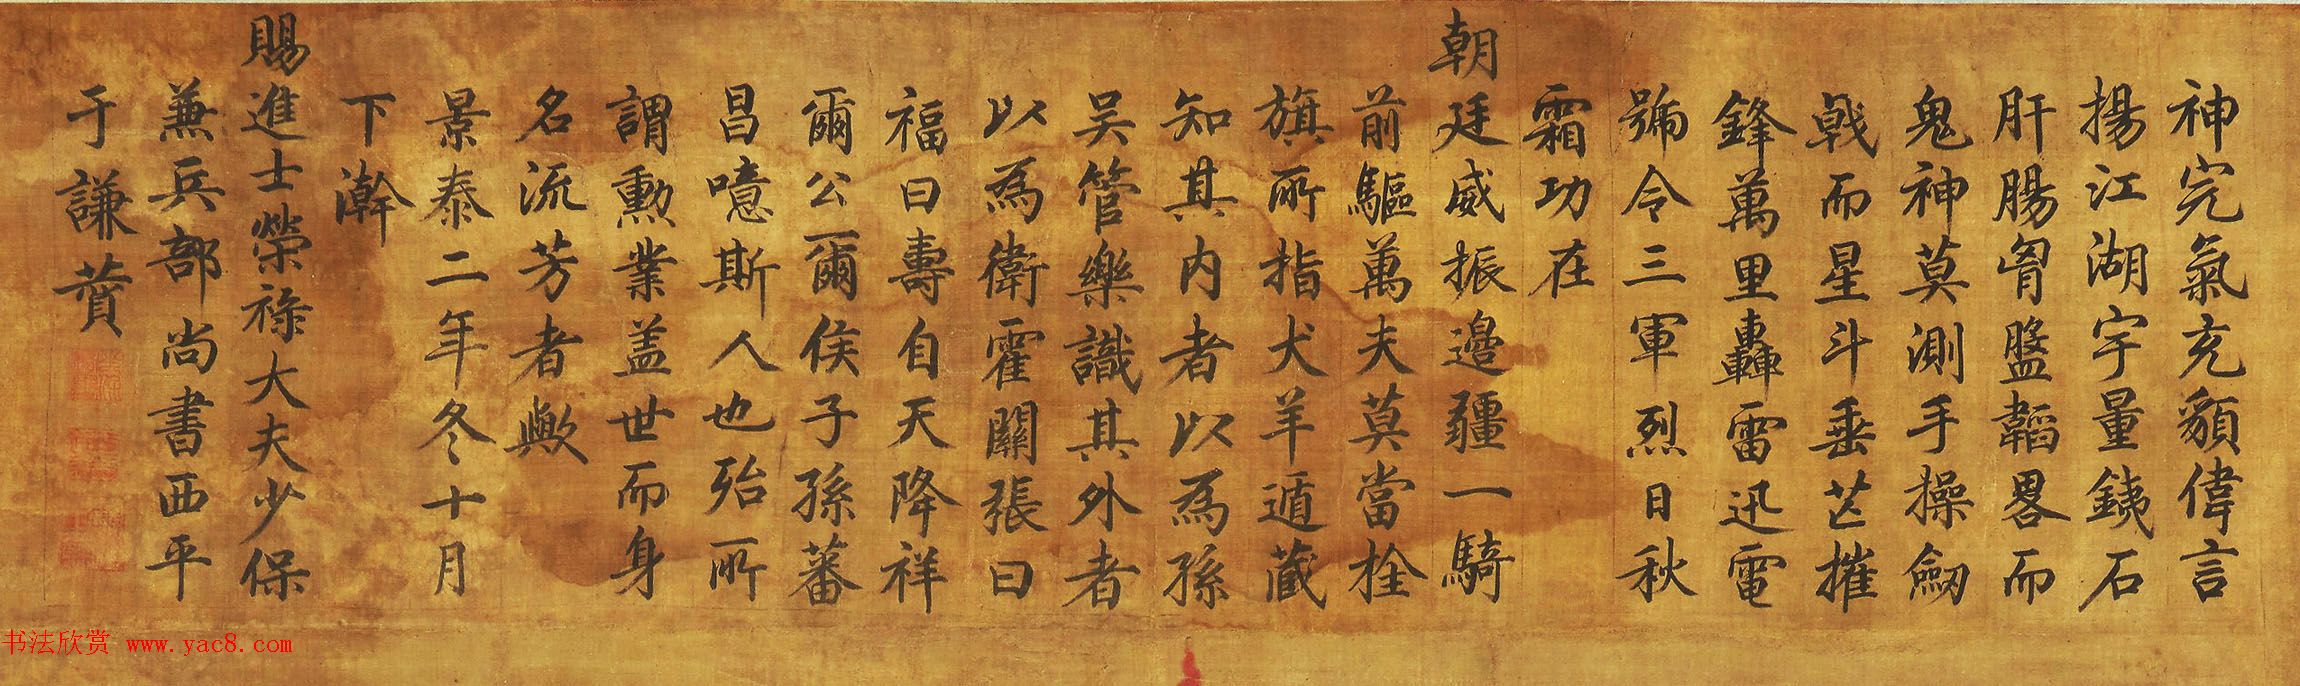 神完氣充貌偉言
揚江湖宇量鉄石
肝腸胷盤韜畧而
鬼神莫測手操劒
戟而星斗垂芒摧
鋒萬里轟雷迅電
號令三軍烈日秋
霜功在
朝廷威振邊疆一騎
前驅萬夫莫當拴
旗所指犬羊遁藏
知其内者以為孫
吴管樂識其外者
以為衛霍關張曰
福曰壽自天降祥
爾公爾侯子孫蕃
昌噫斯人也殆所
謂勲業盖世而身
名流芳者歟
景泰二年冬十月
下澣
賜進士榮祿大夫少保
兼兵部尚書西平
于謙賛
书法欣赏 www.yac8.com